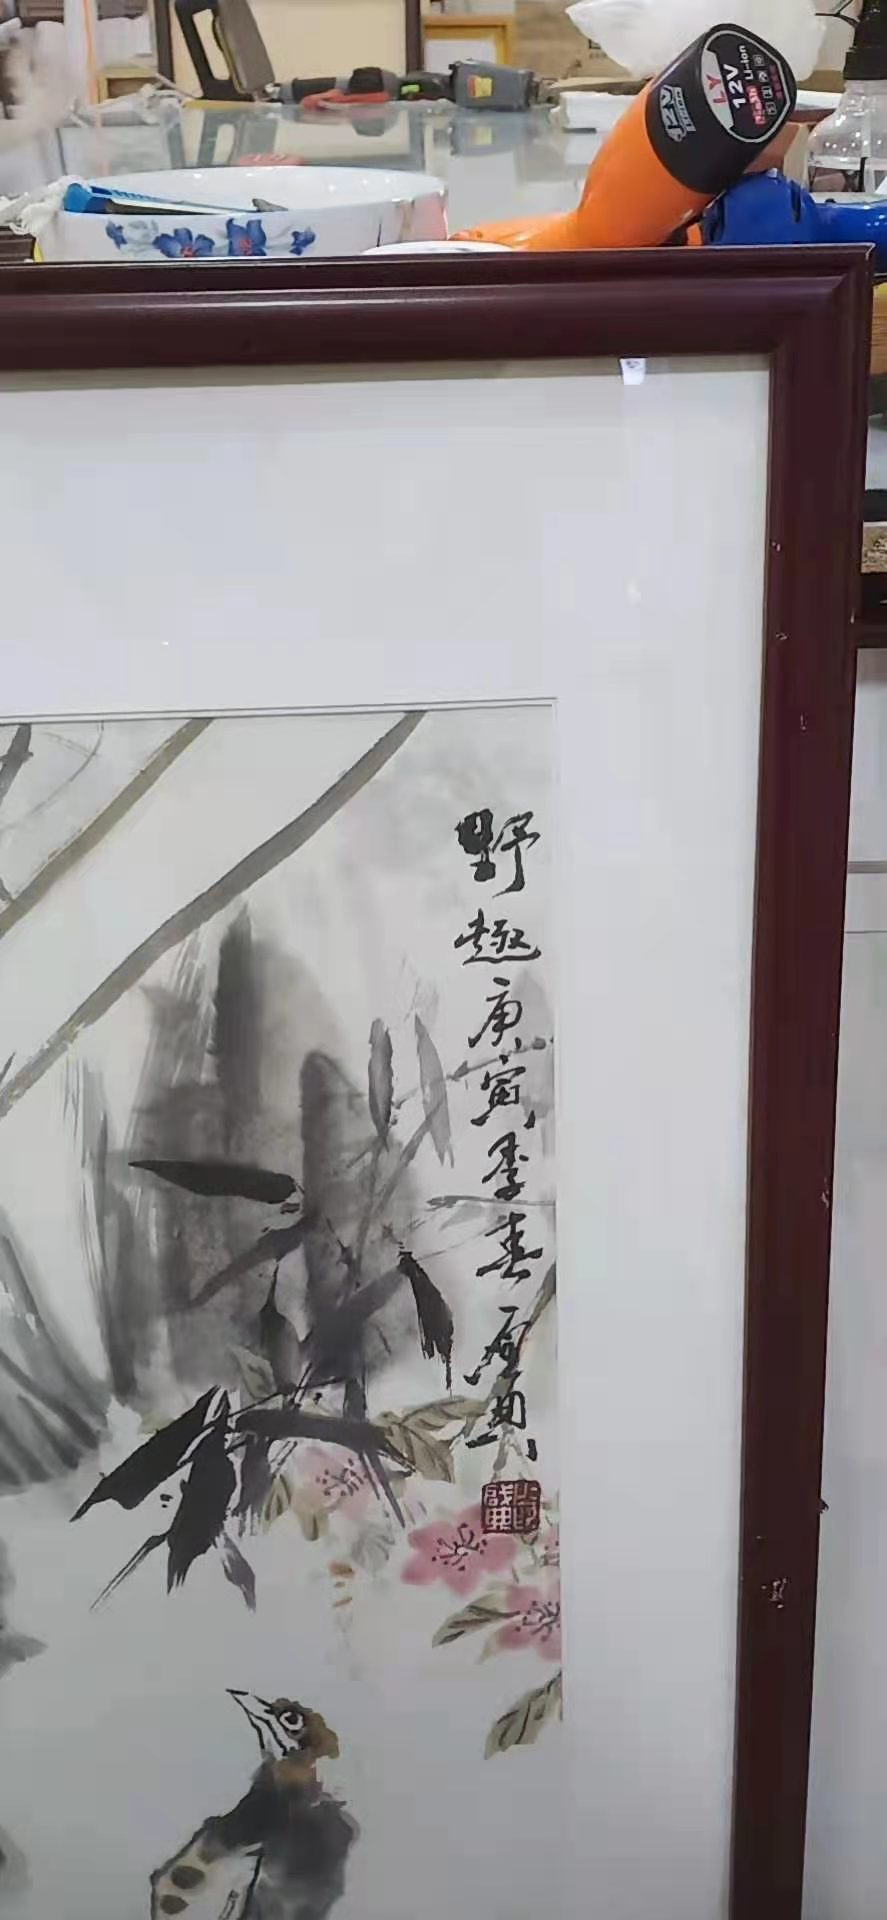 LY
12V
Li-ion
12V
野趣庚寅季春启典